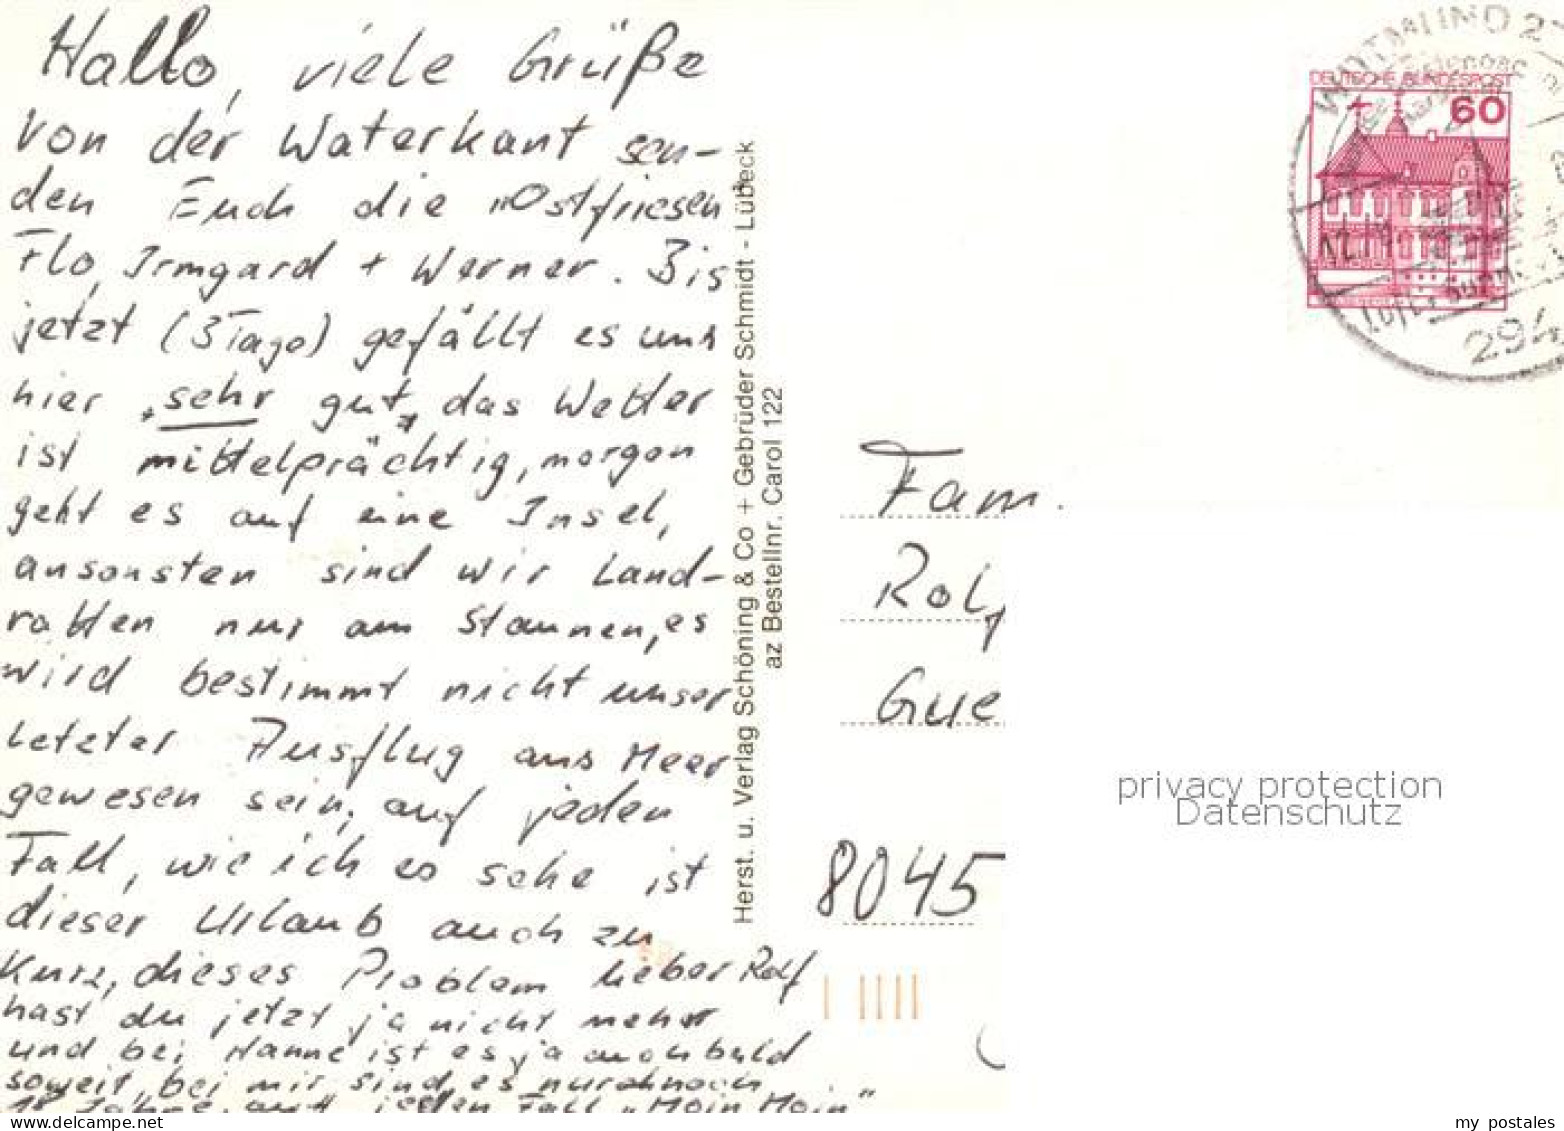 Hallo, viele Grüße
von der Waterkant sen-
den Euch die „Ostfriesen
Flo, Irmgard + Werner. Bis
jetzt (3 Tage) gefällt es uns
hier sehr gut, das Wetter
ist mittelprächtig, morgen
geht es auf eine Insel,
ansonsten sind wir Land-
ratten nur am Staunen, es
wird bestimmt nicht unser
letzter Ausflug ans Meer
gewesen sein, auf jeden
Fall, wie ich es sehe ist
dieser Urlaub auch zu
kurz, dieses Problem lieber Rolf
hast du jetzt ja nicht mehr
und bei Hanne ist es ja auch bald
soweit, bei mir sind es nur noch
Jahre, auf jeden Fall „Moin Moin"
Herst. u. Verlag Schöning & Co + Gebrüder Schmidt - Lübeck
az Bestellnr. Carol 122
DEUTSCHE BUNDESPOST
60
WITTMUND 2
294
Fam.
Rolf
Gue
8045
privacy protection
Datenschutz
www.delcampe.net
my_postales